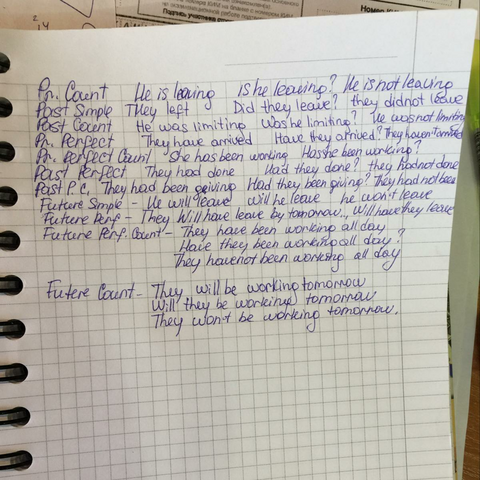 14
Подпись участия
Номер КИМ
Pr. Count He is leaving Is he leaving? He is not leaving
Past Simple They left Did they leave? they did not leave
Past Count He was limiting Was he limiting? He was not limiting
Pr. Perfect They have arrived Have they arrived? They haven't arrived
Pr. Perfect Count She has been working Has he been working?
Past Perfect They had done Had they done? they had not done
Past P.C. They had been geiving Had they been giving? They had not been
Future Simple - He will leave will he leave he won't leave
Future Perf - They Will have leave by tomorrow., Will have they leave
Future Perf. Count - They have been working all day
Have they been working all day?
They have not been working all day
Future Count - They will be working tomorrow
Will they be working tomorrow
They won't be working tomorrow.